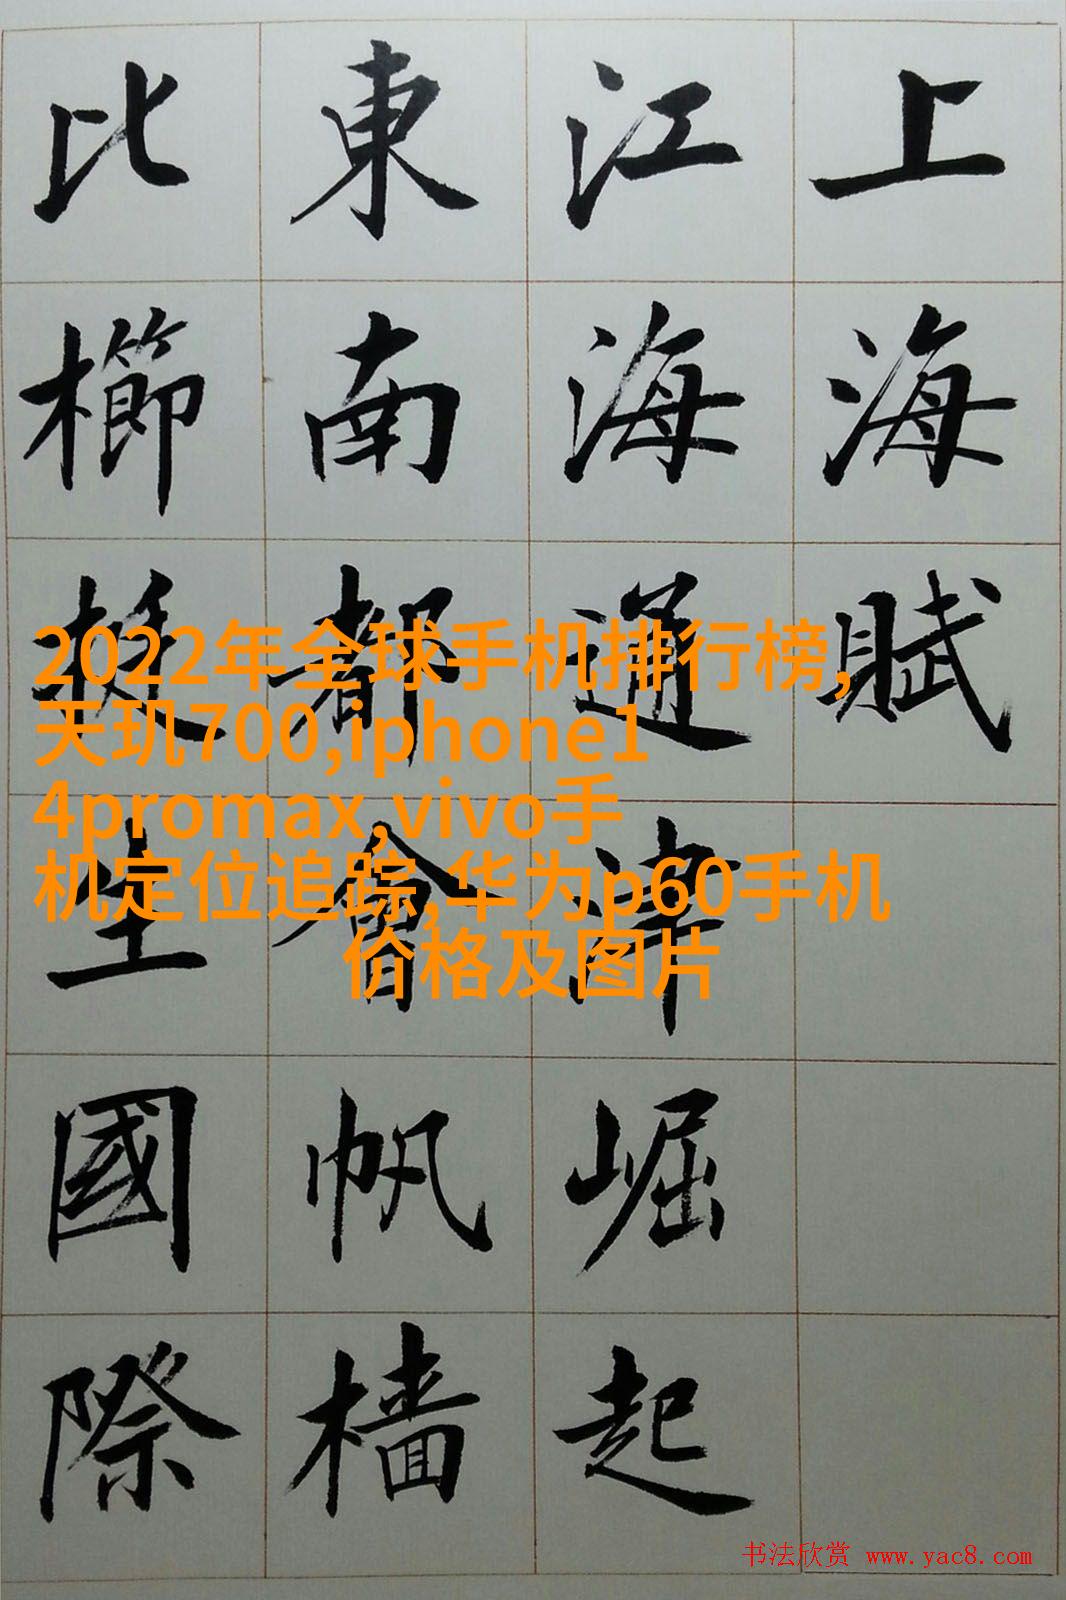 上海賦
江海通津崛起
東南都會帆檣
比櫛挺生國際
2022年全球手机排行榜,
天玑700,iphone1
4promax,vivo手
机定位追踪,华为p60手机
价格及图片
书法欣赏 www.yac8.com